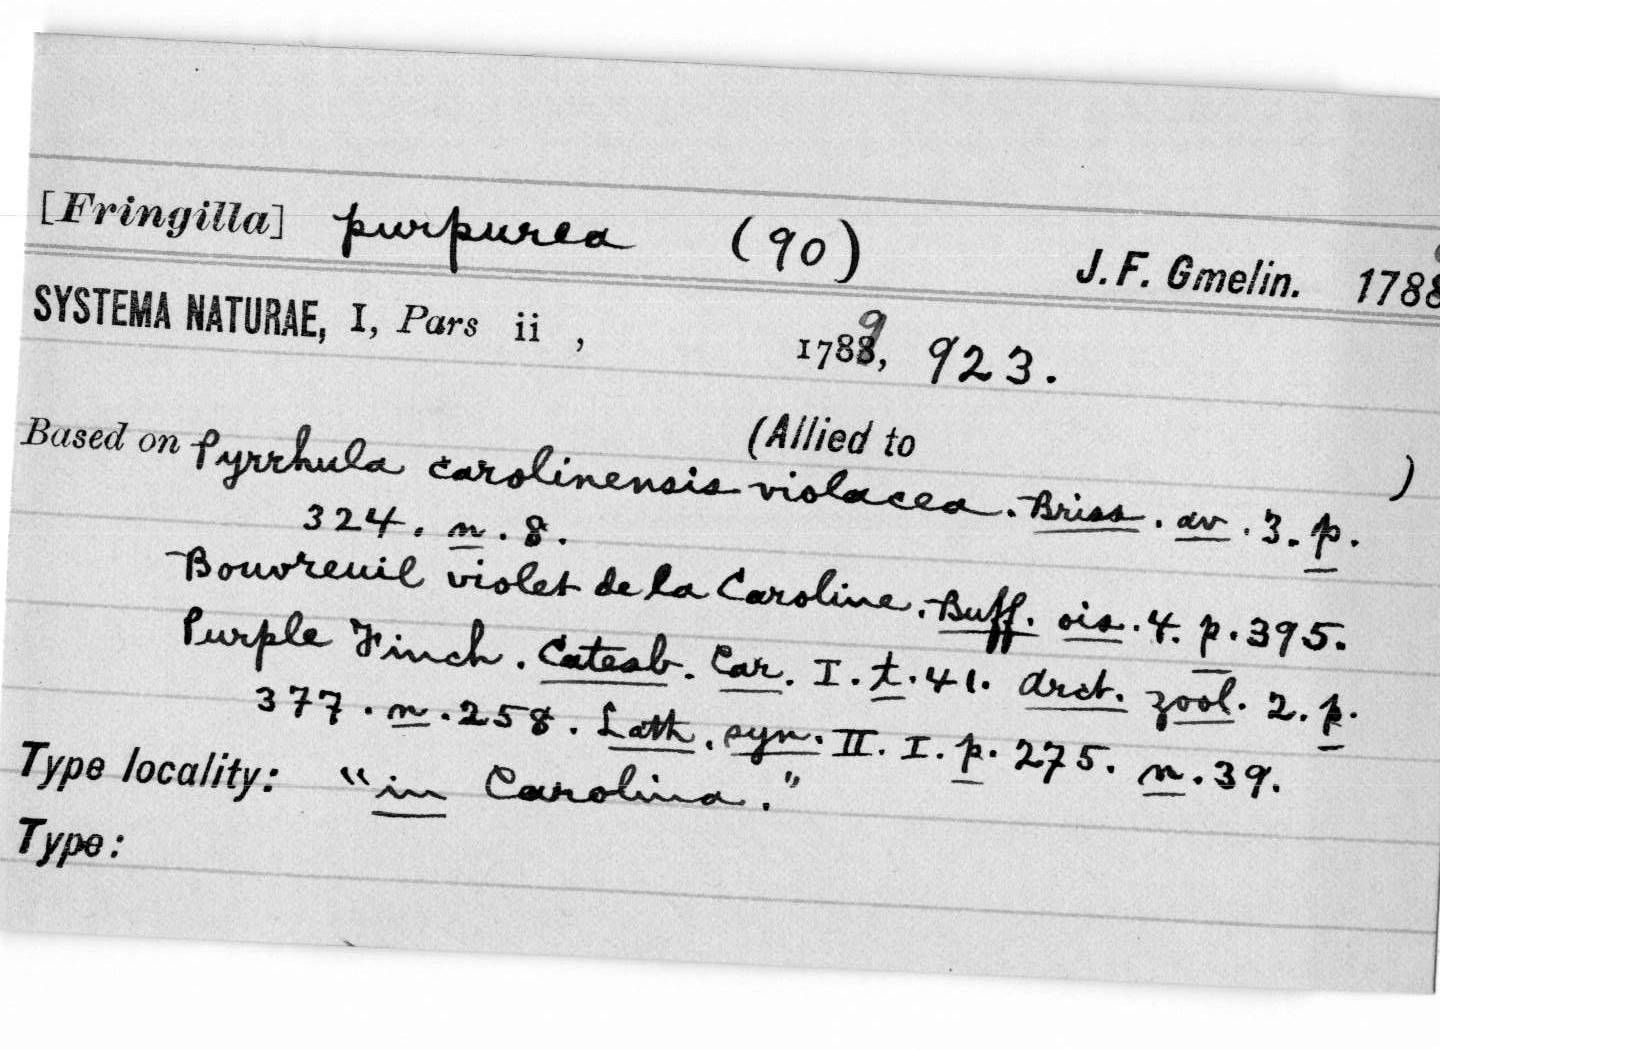 [Fringilla] purpurea (90) J. F. Gmelin. 1788
SYSTEMA NATURAE, I, Pars ii , 1789, 923.
(Allied to )
Based on Pyrrhula carolinensis violacea. Briss. av. 3. p.
324. n. 8.
Bouvreuil violet de la Caroline. Buff. ois. 4. p. 395.
Purple Finch. Catesb. Car. I. t. 41. Arct. zool. 2. p.
377. n. 258. Lath. syn. II. I. p. 275. n. 39.
Type locality: "in Carolina."
Type: